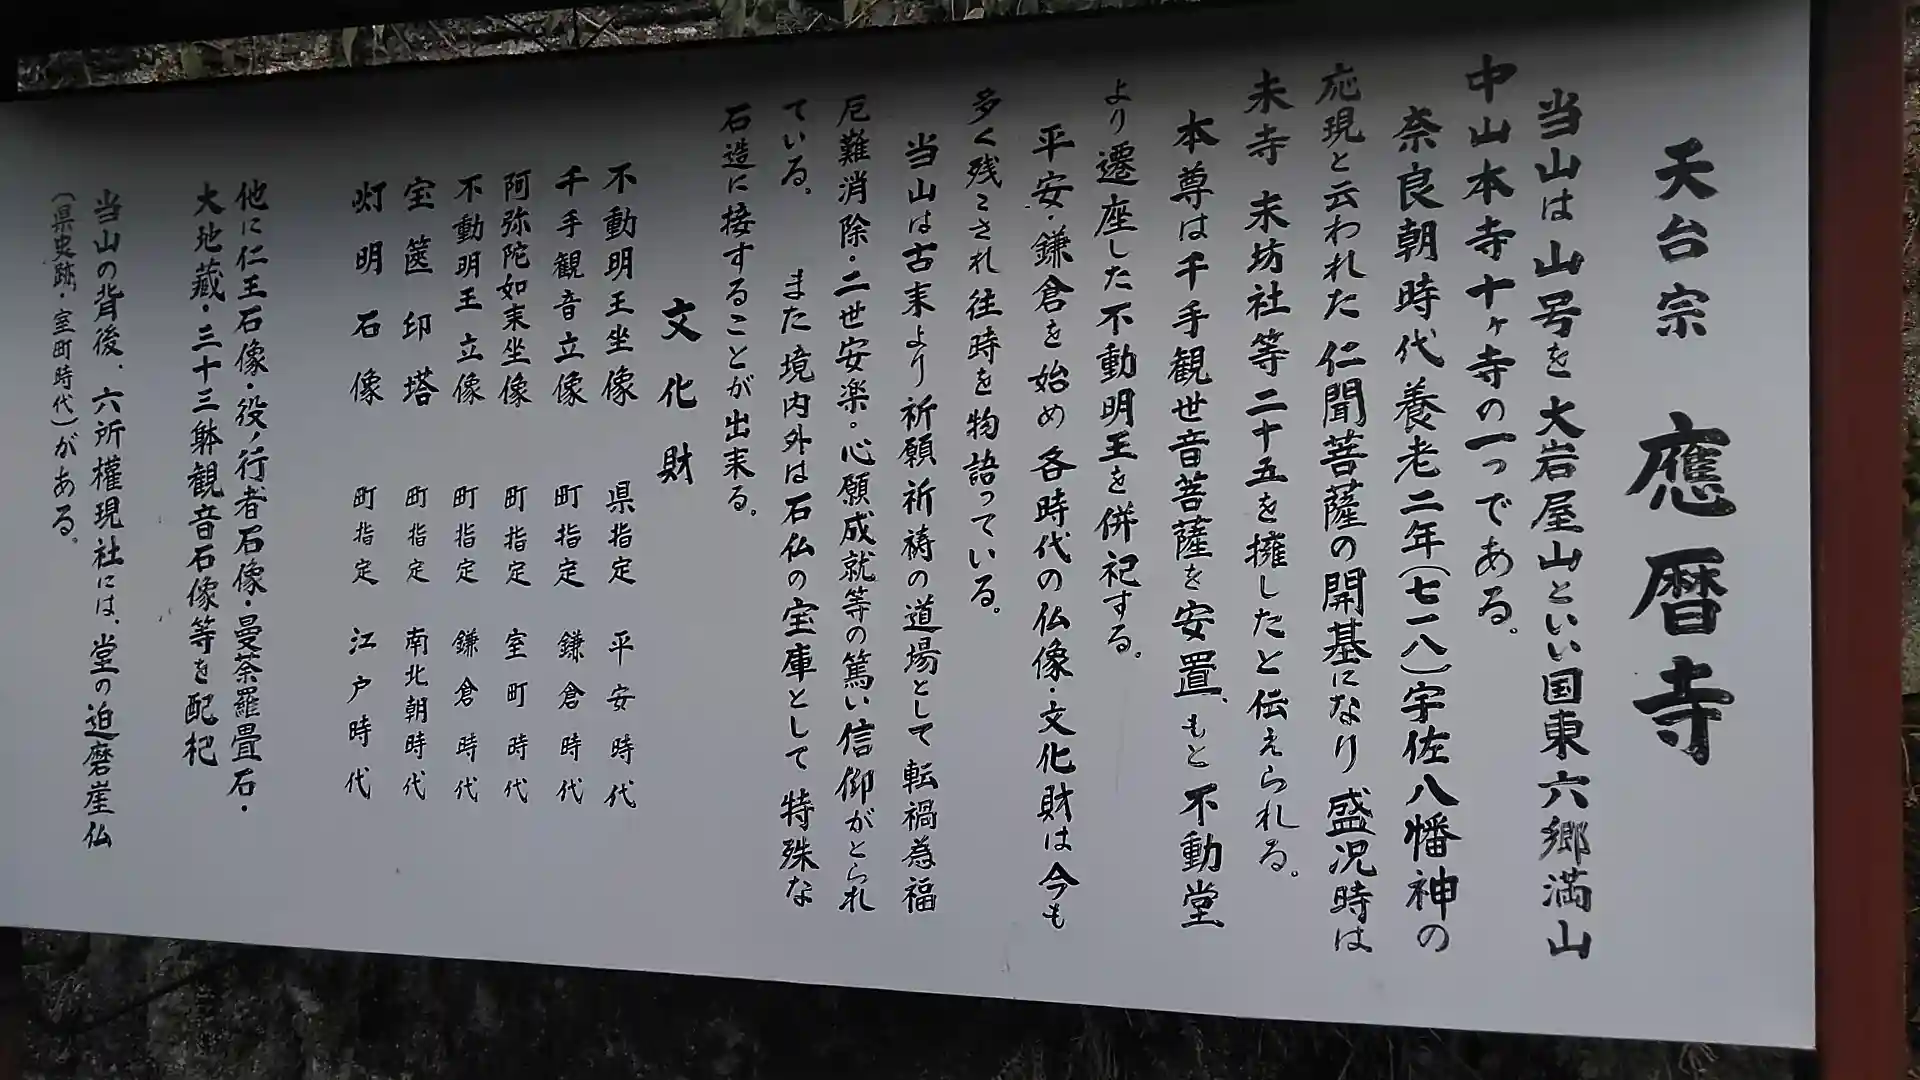 天台宗 應暦寺
当山は山号を大岩屋山といい国東六郷満山
中山本寺十ヶ寺の一つである。
奈良朝時代養老二年(七一八)宇佐八幡神の
応現と云われた仁聞菩薩の開基になり盛況時は
末寺末坊社等二十五を擁したと伝えられる。
本尊は千手観世音菩薩を安置、もと不動堂
より遷座した不動明王を併祀する。
平安・鎌倉を始め各時代の仏像・文化財は今も
多く残こされ往時を物語っている。
当山は古来より祈願祈祷の道場として転禍為福
厄難消除・二世安楽。心願成就等の篤い信仰がとられ
ている。 また境内外は石仏の宝庫として特殊な
石造に接することが出来る。
文化財
不動明王坐像 県指定 平安時代
千手観音立像 町指定 鎌倉時代
阿弥陀如来坐像 町指定 室町時代
不動明王立像 町指定 鎌倉時代
宝篋印塔 町指定 南北朝時代
灯明石像 町指定 江戸時代
他に仁王石像・役ノ行者石像・曼荼羅畳石・
大地蔵・三十三躰観音石像等を配杞
当山の背後、六所權現社には、堂の迫磨崖仏
(県史跡・室町時代)がある。